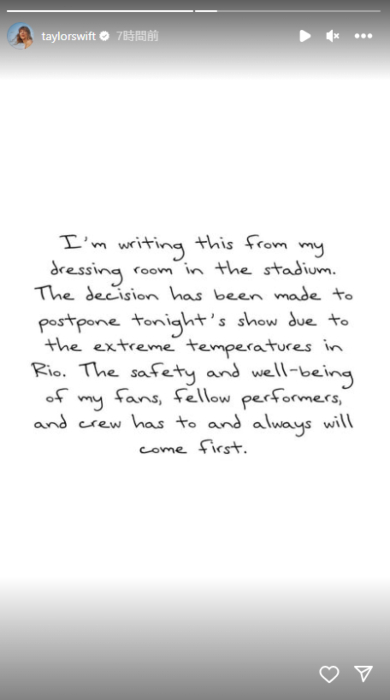 taylorswift 7時間前
I'm writing this from my
dressing room in the stadium.
The decision has been made to
postpone tonight's show due to
the extreme temperatures in
Rio. The safety and well-being
of my fans, fellow performers,
and crew has to and always will
come first.